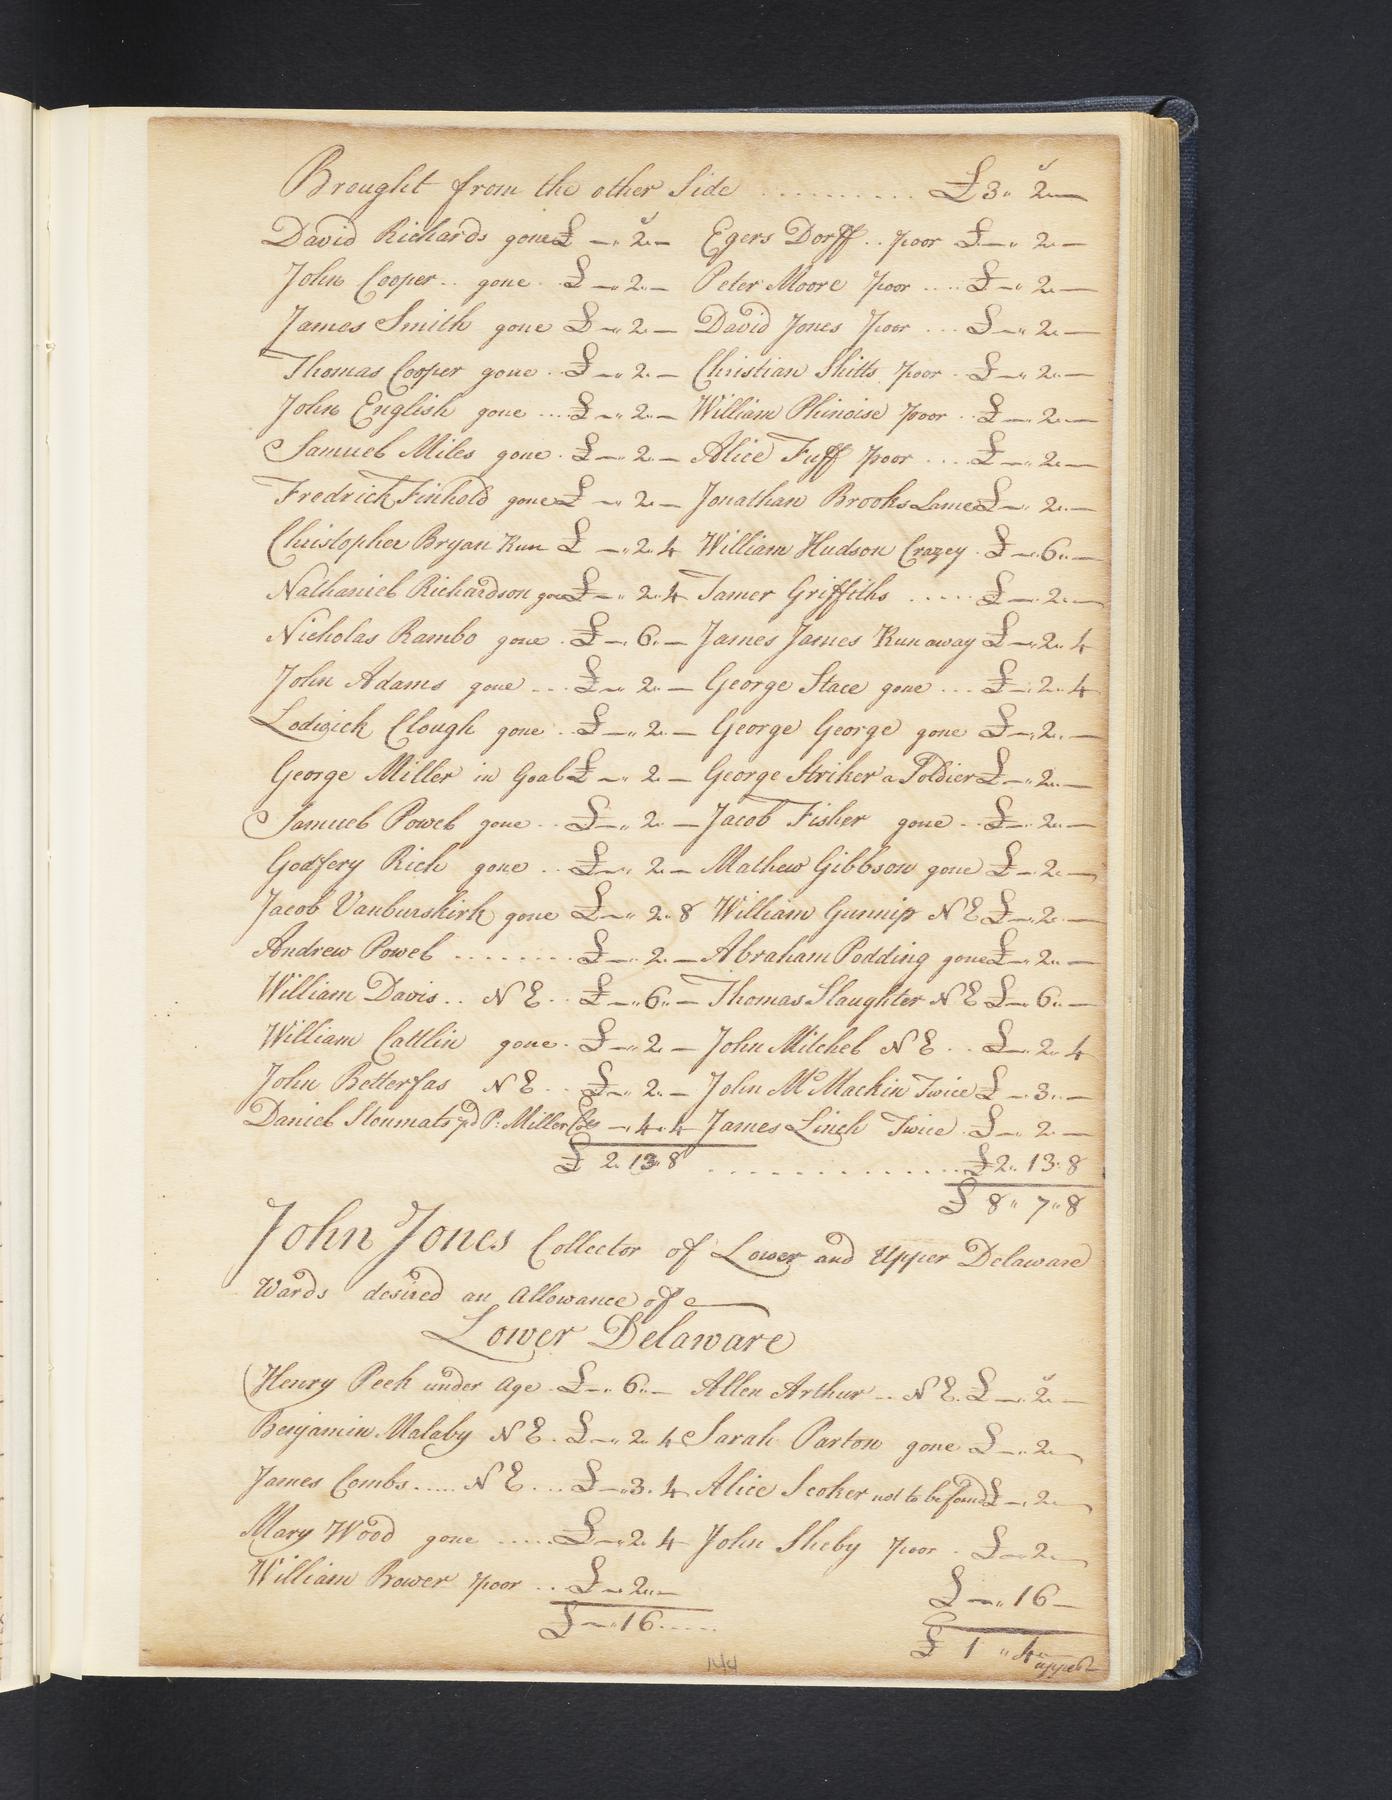 Brought from the other Side .......... £3„ 2s—
David Richards gone £ —„ 2s— Egers Dorff .. poor £—„ 2„—
John Cooper .. gone . £ —„2„— Peter Moore poor .... £—„ 2„—
James Smith gone £ —„ 2„— David Jones poor ... £—„ 2„—
Thomas Cooper gone .. £ —„ 2„— Christian Shitts poor . £—„ 2„—
John English gone .... £ —„ 2„— William Phinoise poor .. £—„ 2„—
Samuel Miles gone . £ —„ 2„— Alice Fuff poor .... £—„ 2„—
Fredrich Finhold gone £ —„ 2„— Jonathan Brooks Lame £—„ 2„—
Christopher Bryan Run £ —„ 2„4 William Hudson Crazey . £—„6„—
Nathaniel Richardson gone £ —„ 2„4 Tamer Griffiths ..... £—„2„—
Nicholas Rambo gone . £ —„ 6„— James James Runaway £—„2„4
John Adams gone ... £ —„ 2„— George Stace gone ... £—„2„4
Lodwick Clough gone .. £ —„ 2„— George George gone £—„2„—
George Miller in Goal £ —„ 2„— George Striker a Soldier £—„2„—
Samuel Powel gone .. £ —„ 2„— Jacob Fisher gone .. £—„2„—
Godfery Rich gone .. £ —„ 2„— Mathew Gibbson gone £—„2„—
Jacob Vanburskirk gone £ —„ 2„8 William Gunnip N E £—„2„—
Andrew Powel ........ £ —„ 2„— Abraham Podding gone £—„2„—
William Davis .. N E .. £ —„6„— Thomas Slaughter N E £—„6„—
William Cattlin gone . £ —„ 2„— John Mitchel N E .. £—„2„4
John Betterfas N E .. £ —„ 2„— John McMackin Twice £—„3„—
Daniel Stonmats pd P. Miller —„4„4 James Linch Twice . £—„2„—
£ 2„13„8 ............... £2„13„8
£ 8„ 7„8
John Jones Collector of Lower and Upper Delaware
Wards desired an Allowance of
Lower Delaware
Henry Peek under Age . £—„ 6„— Allen Arthur .. N E . £—„ 2s—
Benjamin Malaby N E . £—„ 2„4 Sarah Parton gone £—„ 2„—
James Combs ..... N E ... £—„3„4 Alice Scoker not to be found £—„ 2„—
Mary Wood gone ..... £—„2„4 John Sheby poor . £—„2„—
William Bower poor .. £—„2„—
£—„ 16—
£—„16.....
£ 1 „ 4„—
upper
144